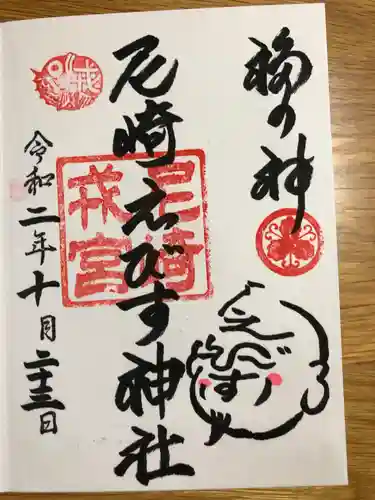 福の神
尼崎えびす神社
令和二年十月二十三日
尼崎
戎宮
戎
えびす